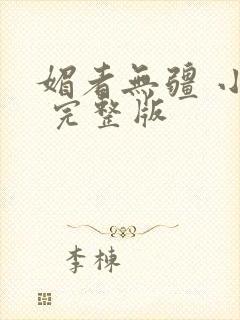 媚者無疆 小
完整版
李棟